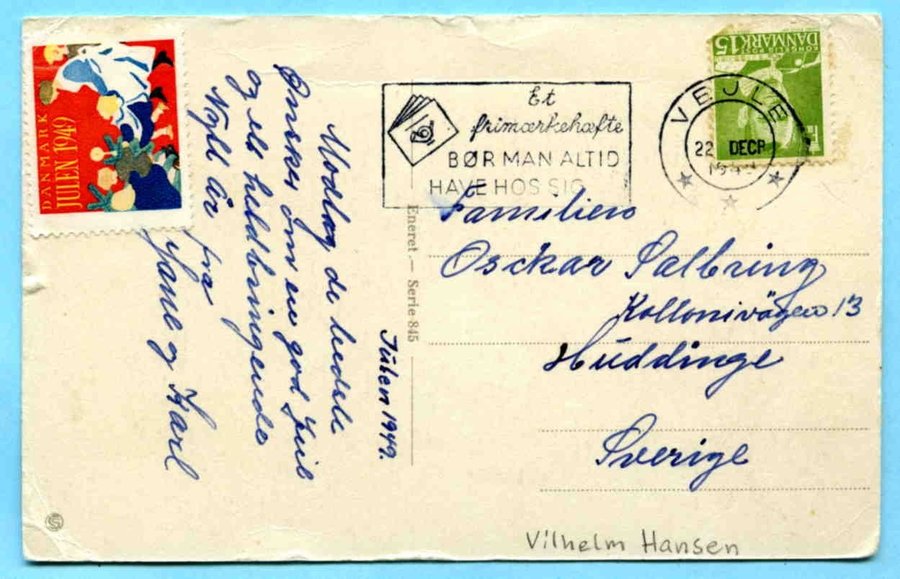 DANMARK
JULEN 1949
Julen 1949.
Modtag de bedste
Ønsker om en god Jul
og et heldbringende
Nytt År fra
Jane og Karl
Eneret. — Serie 845
Et
frimærkehæfte
BØR MAN ALTID
HAVE HOS SIG
VEJLE
22 DECR
DANMARK 15
Familien
Osckar Salbring
Kollonivägen 13
Huddinge
Sverige
Vilhelm Hansen